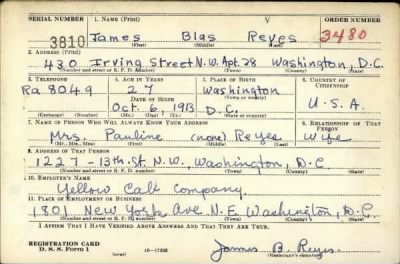 SERIAL NUMBER 1. NAME (Print) ORDER NUMBER
3810 James Blas Reyes 3480
(First) (Middle) (Last)
2. ADDRESS (Print)
430 Irving Street N.W. Apt. 28 Washington, D.C.
(Number and street or R. F. D. number) (Town) (County) (State)
3. TELEPHONE 4. AGE IN YEARS 5. PLACE OF BIRTH 6. COUNTRY OF CITIZENSHIP
Ra 8049 27 Washington
DATE OF BIRTH (Town or county)
Oct. 6, 1913 D.C. U.S.A.
(Exchange) (Number) (Mo.) (Day) (Yr.) (State or country)
7. NAME OF PERSON WHO WILL ALWAYS KNOW YOUR ADDRESS 8. RELATIONSHIP OF THAT PERSON
Mrs. Pauline (none) Reyes Wife
(Mr., Mrs., Miss) (First) (Middle) (Last)
9. ADDRESS OF THAT PERSON
1227 - 13th St. N.W., Washington, D.C
(Number and street or R. F. D. number) (Town) (County) (State)
10. EMPLOYER'S NAME
Yellow Cab Company
11. PLACE OF EMPLOYMENT OR BUSINESS
1801 New York Ave N.E. Washington, D.C.
(Number and street or R. F. D. number) (Town) (County) (State)
I AFFIRM THAT I HAVE VERIFIED ABOVE ANSWERS AND THAT THEY ARE TRUE.
REGISTRATION CARD
D. S. S. Form 1 (over) James B. Reyes
(Registrant's signature)